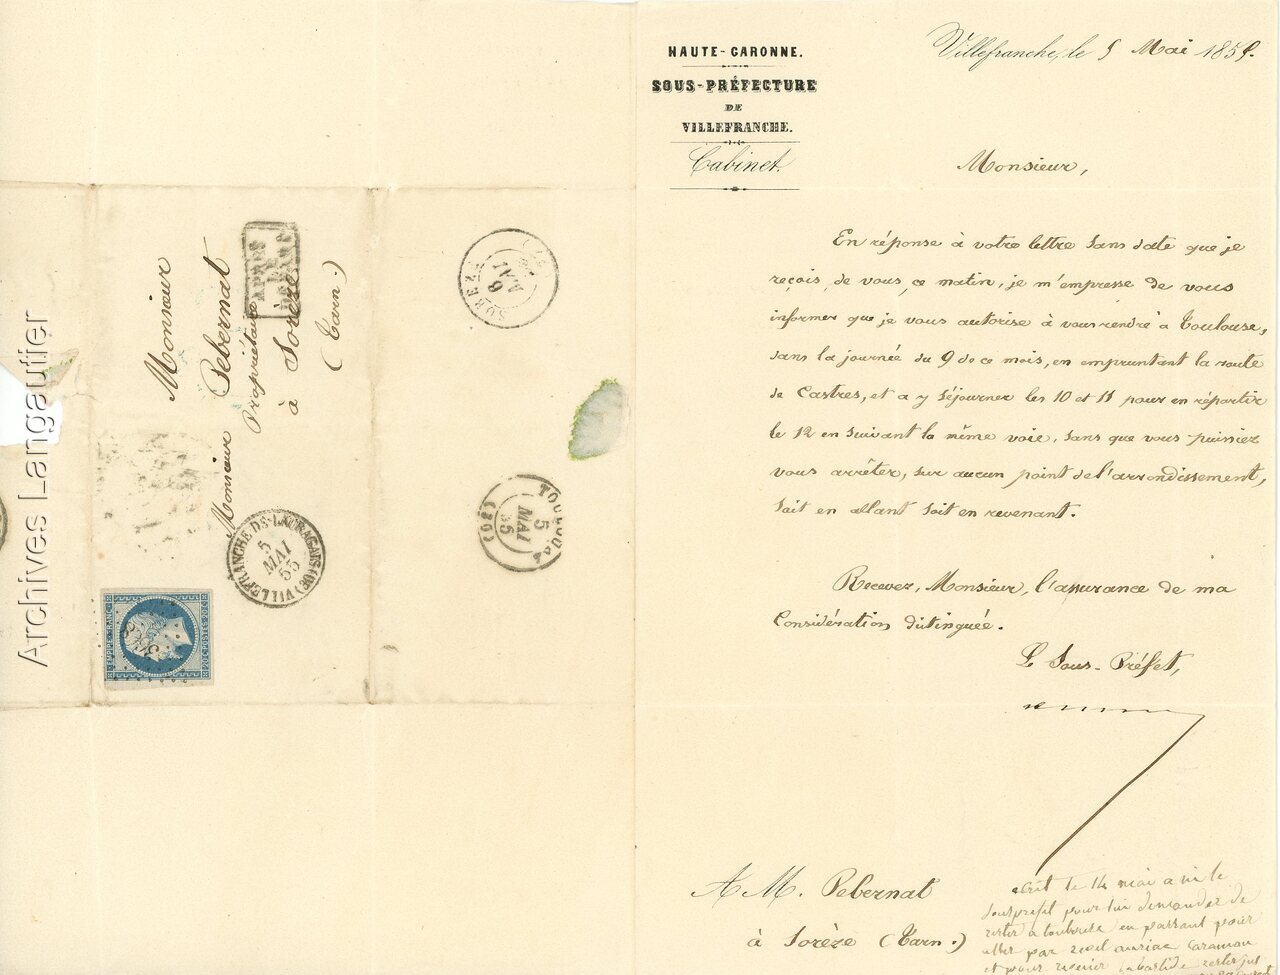 Archives Langautier
Monsieur
Monsieur Pebernat
Propriétaire
à Sorèze
(Tarn.)
APRÈS
LE
DÉPART
VILLEFRANCHE-DE-LAURAGAIS (30)
5
MAI
55
EMPIRE FRANC
20 C POSTES 20 C
SOREZE
6
MAI
TOULOUSE
5
MAI
55
(30)
HAUTE-GARONNE.
SOUS-PRÉFECTURE
DE
VILLEFRANCHE.
Cabinet.
Villefranche, le 5 Mai 1855.
Monsieur,
En réponse à votre lettre sans date que je
reçois de vous ce matin, je m'empresse de vous
informer que je vous autorise à vous rendre à Toulouse,
dans la journée du 9 de ce mois, en empruntant la route
de Castres, et a y séjourner les 10 et 11 pour en répartir
le 12 en suivant la même voie, sans que vous puissiez
vous arrêter, sur aucun point de l'arrondissement,
soit en allant soit en revenant.
Recevez, Monsieur, l'assurance de ma
Considération distinguée.
Le Sous-Préfet,
A M. Pebernat
à Sorèze (Tarn.)
écrit le 14 mai a mr le
souspréfet pour lui demander de
rester a toulouse en passant pour
aller par revel auriac Caraman
et pour revenir labastide